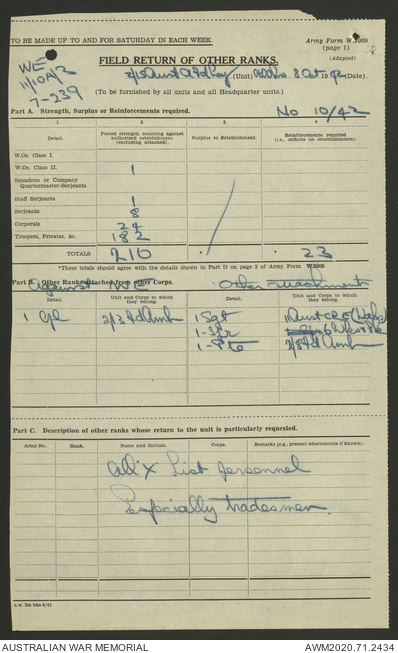 TO BE MADE UP TO AND FOR SATURDAY IN EACH WEEK.
Army Form W.3009
(page 1)
(Adapted)
FIELD RETURN OF OTHER RANKS.
WE
11/10A/2
7-239
2/15 Aust Fd Coy (Unit) 0600 hrs 8 Oct 1942 (Date).
(To be furnished by all units and all Headquarter units.)
No 10/42
Part A. Strength, Surplus or Reinforcements required.
1 2 3 4
Detail. Posted strength counting against authorized establishment (excluding attached). Surplus to Establishment. Reinforcements required (i.e., deficits on establishment).
W.Os. Class I.
W.Os. Class II. 1
Squadron or Company Quartermaster-Serjeants
Staff Serjeants 1
Serjeants 8
Corporals
Troopers, Privates, &c. 182
TOTALS 210 23
*These totals should agree with the details shown in Part D on page 2 of Army Form W.3009.
Part B. Other Ranks attached from other Corps.
Against WE Other attachments
Detail. Unit and Corps to which they belong. Detail. Unit and Corps to which they belong.
1 Cpl 2/3 Fd Amb 1 Sgt
1 - Spr
1 - Pte 2/8 Fd Amb
Part C. Description of other ranks whose return to the unit is particularly requested.
Army No. Rank. Name and Initials. Corps. Remarks (e.g., present whereabouts if known).
All X List personnel
Especially tradesmen.
AUSTRALIAN WAR MEMORIAL
AWM2020.71.2434